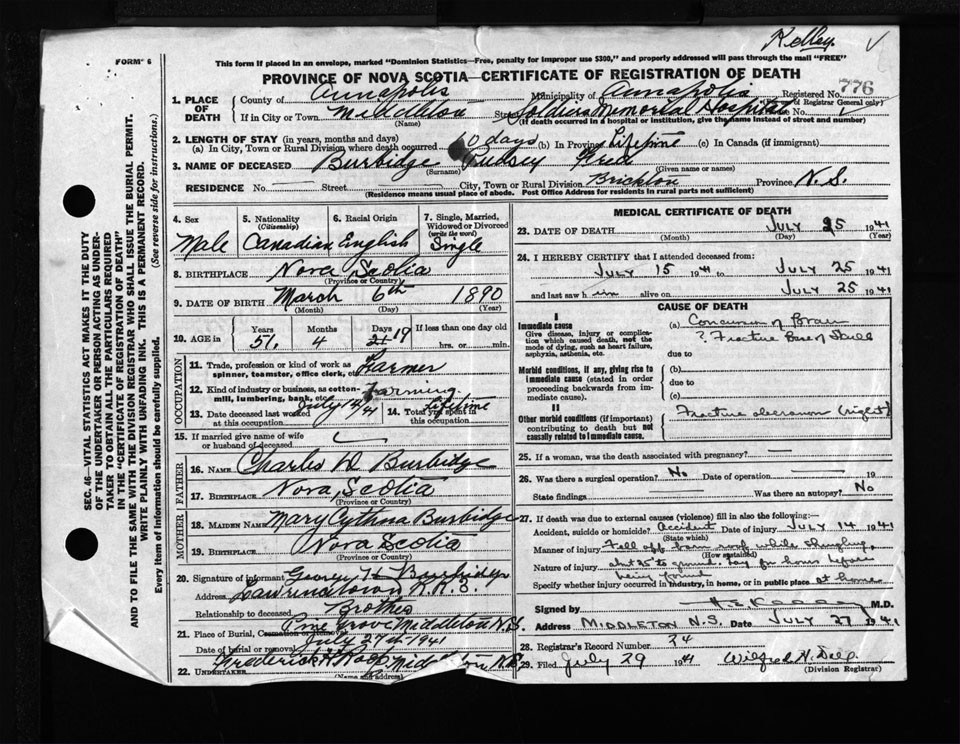 Kelley. ✓
FORM 6
This form if placed in an envelope, marked "Dominion Statistics—Free, penalty for improper use $300," and properly addressed will pass through the mail "FREE"
PROVINCE OF NOVA SCOTIA—CERTIFICATE OF REGISTRATION OF DEATH
776
1. PLACE OF DEATH County of Annapolis Municipality of Annapolis Registered No. (Registrar General only)
If in City or Town Middleton (Name) Soldiers Memorial Hospital No.
(If death occurred in a hospital or institution, give the name instead of street and number)
2. LENGTH OF STAY (in years, months and days)
(a) In City, Town or Rural Division where death occurred 10 days (b) In Province Lifetime (c) In Canada (if immigrant)
3. NAME OF DECEASED Burbidge Fred
(Surname) (Given name or names)
RESIDENCE No. Street City, Town or Rural Division Brickton Province N.S.
(Residence means usual place of abode. Post Office Address for residents in rural parts not sufficient)
4. Sex Male
5. Nationality (Citizenship) Canadian
6. Racial Origin English
7. Single, Married, Widowed or Divorced (write the word) Single
8. BIRTHPLACE Nova Scotia
(Province or Country)
9. DATE OF BIRTH March 6th 1890
(Month) (Day) (Year)
10. AGE in Years 51. Months 4 Days 21 19 If less than one day old hrs. or min.
OCCUPATION
11. Trade, profession or kind of work as spinner, teamster, office clerk, etc. Farmer
12. Kind of industry or business, as cotton-mill, lumbering, bank, etc. Farming
13. Date deceased last worked at this occupation July 14/41 14. Total yrs. spent in this occupation lifetime
15. If married give name of wife or husband of deceased
FATHER
16. NAME Charles D Burbidge
17. BIRTHPLACE Nova Scotia
(Province or Country)
MOTHER
18. MAIDEN NAME Mary Cythna Burbidge
19. BIRTHPLACE Nova Scotia
(Province or Country)
20. Signature of informant George H Burbidge
Address Lawrencetown R.R.
Relationship to deceased Brother
21. Place of Burial, Cremation or Removal Pine Grove Middleton N.S.
Date of burial or removal July 27th 1941
22. UNDERTAKER Frederick H Roop Middleton N.S.
(Name and address)
MEDICAL CERTIFICATE OF DEATH
23. DATE OF DEATH JULY 25 1941
(Month) (Day) (Year)
24. I HEREBY CERTIFY that I attended deceased from:
JULY 15 1941 to JULY 25 1941
and last saw him alive on JULY 25 1941
CAUSE OF DEATH
I
Immediate cause
Give disease, injury or complication which caused death, not the mode of dying, such as heart failure, asphyxia, asthenia, etc.
(a) Concussion of Brain
? Fracture Base of Skull
due to
Morbid conditions, if any, giving rise to immediate cause (stated in order proceeding backwards from immediate cause).
(b)
due to
(c)
II
Other morbid conditions (if important) contributing to death but not causally related to immediate cause.
Fracture olecranon (right)
25. If a woman, was the death associated with pregnancy?
26. Was there a surgical operation? No Date of operation 19
State findings Was there an autopsy? No
27. If death was due to external causes (violence) fill in also the following:
Accident, suicide or homicide? Accident Date of injury JULY 14 1941
(State which)
Manner of injury Fell off barn roof while shingling,
(How sustained)
Nature of injury abt 25 to ground. Lay for hours before
being found
Specify whether injury occurred in industry, in home, or in public place at home
Signed by M.D.
Address MIDDLETON N.S. Date JULY 27 1941
28. Registrar's Record Number 34
29. Filed July 29 1941 Wilfred H.
(Division Registrar)
SEC. 46. VITAL STATISTICS ACT MAKES IT THE DUTY
OF THE UNDERTAKER OR PERSON ACTING AS UNDER-
TAKER TO OBTAIN ALL THE PARTICULARS REQUIRED
IN THE "CERTIFICATE OF REGISTRATION OF DEATH"
AND TO FILE THE SAME WITH THE DIVISION REGISTRAR WHO SHALL ISSUE THE BURIAL PERMIT.
WRITE PLAINLY WITH UNFADING INK. THIS IS A PERMANENT RECORD.
Every item of Information should be carefully supplied. (See reverse side for instructions.)